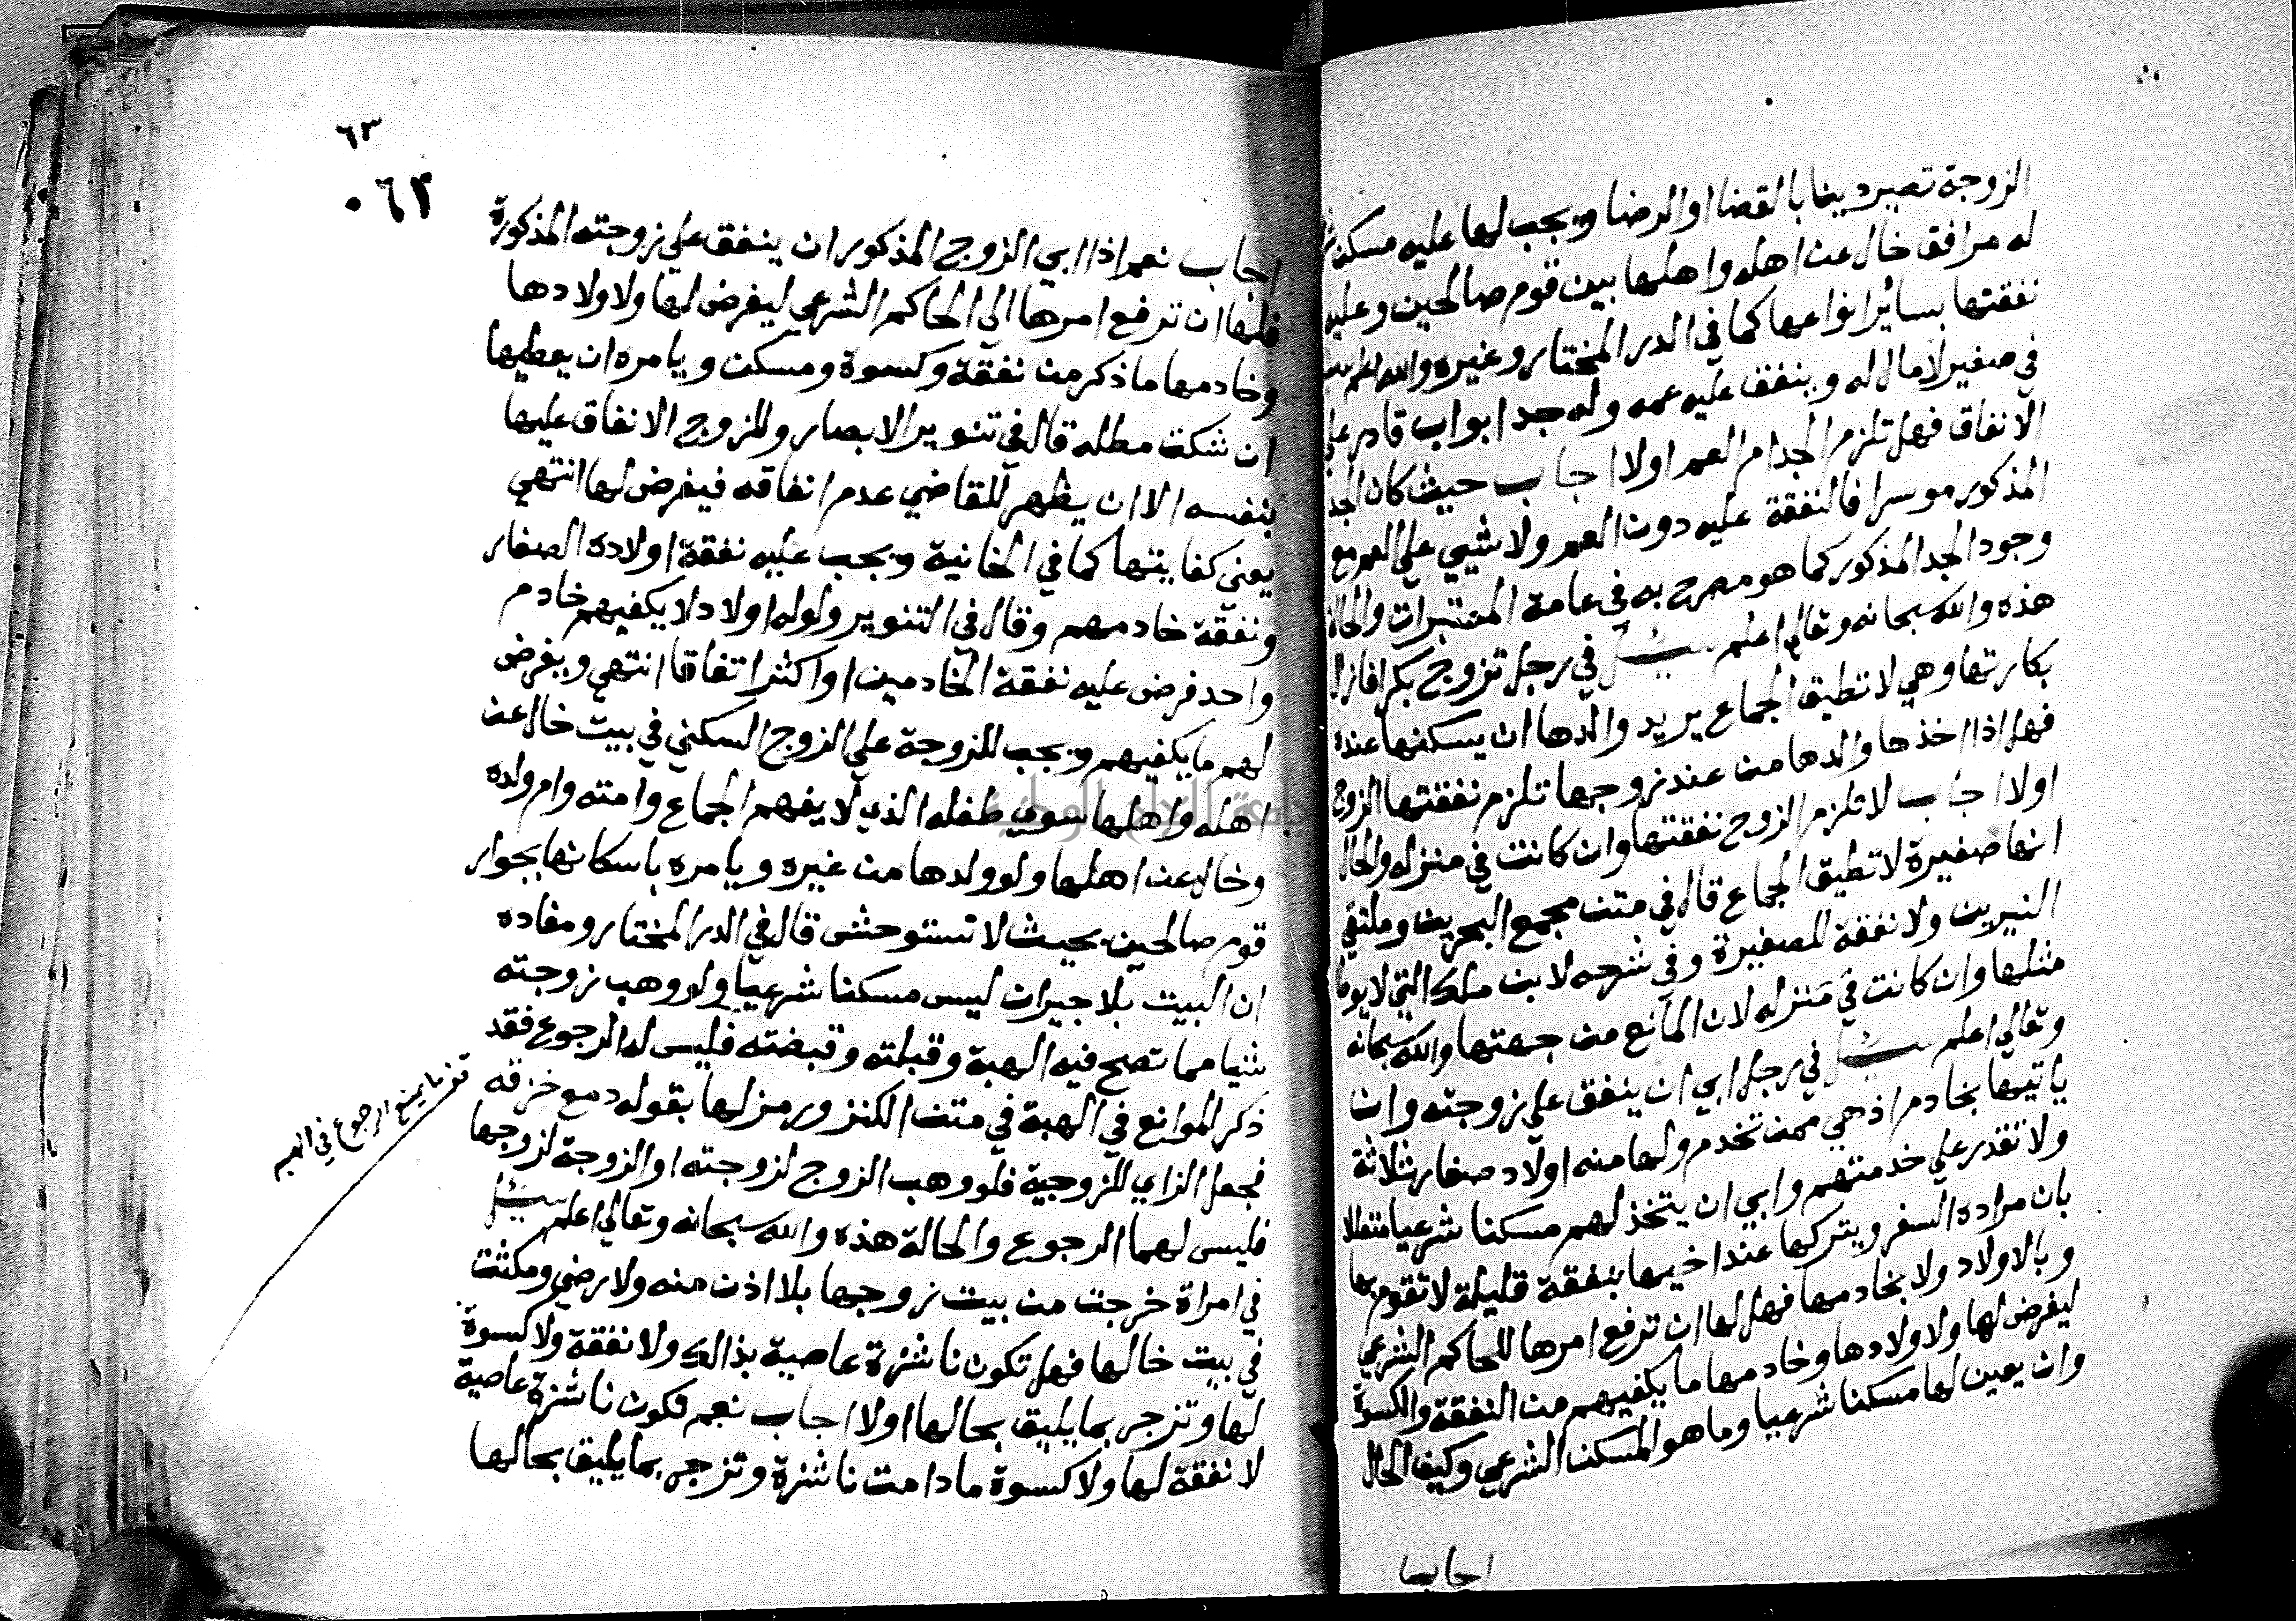 الزوجة تصير دينا بالقضا او الرضا ويجب لها عليه مسكن
له مرافق خال عن اهله واهلها بين قوم صالحين وعليه
نفقتها بسائر انواعها كما في الدر المختار وغيره والله اعلم سئل
في صغير لا مال له وينفق عليه عمه وله جد ابو اب قادر على
الانفاق فهل تلزم الجد ام العم او لا اجاب حيث كان الجد
المذكور موسرا فالنفقة عليه دون العم ولا شيي علي العم مع
وجود الجد المذكور كما هو مصرح به في عامة المعتبرات والحالة
هذه والله سبحانه وتعالي اعلم سئل في رجل تزوج بكرا فازال
بكارتها وهي لا تطيق الجماع يريد والدها ان يسكنها عنده
فهل اذا اخذها والدها من عند زوجها تلزم نفقتها الزوج
او لا اجاب لا تلزم الزوج نفقتها وان كانت في منزله والحال
انها صغيرة لا تطيق الجماع قال في متن مجمع البحرين وملتقي
النيرين ولا نفقة للصغيرة وفي شرحه لابن ملك التي لا يوطا
مثلها وان كانت في منزله لان المانع من جهتها والله سبحانه
وتعالي اعلم سئل في رجل ابي ان ينفق علي زوجته وان
ياتيها بخادم اذ هي ممن تخدم ولها منه اولاد صغار ثلاثة
ولا تقدر علي خدمتهم وابي ان يتخذ لهم مسكنا شرعيا متعللا
بان مراده السفر ويتركها عند اخيها بنفقة قليلة لا تقوم بها
وبالاولاد ولا بخادمها فهل لها ان ترفع امرها للحاكم الشرعي
ليفرض لها ولاولادها وخادمها ما يكفيهم من النفقة والكسوة
وان يعين لها مسكنا شرعيا وما هو المسكن الشرعي وكيف الحال
اجاب
٦٣
٠٦٢
اجاب نعم اذا ابي الزوج المذكور ان ينفق علي زوجته المذكورة
فلها ان ترفع امرها الي الحاكم الشرعي ليفرض لها ولاولادها
وخادمها ما ذكر من نفقة وكسوة ومسكن ويامره ان يعطيها
ان شكت مطله قال في تنوير الابصار وللزوج الانفاق عليها
بنفسه الا ان يظهر للقاضي عدم انفاقه فيفرض لها انتهي
يعني كفايتها كما في الخانية ويجب عليه نفقة اولاده الصغار
ونفقة خادمهم وقال في التنوير ولو له اولاد لا يكفيهم خادم
واحد فرض عليه نفقة الخادمين او اكثر اتفاقا انتهي ويفرض
لهم ما يكفيهم ويجب للزوجة علي الزوج السكني في بيت خال عن
اهله واهلها سوي طفله الذي لا يفهم الجماع وامته وام ولده
وخال عن اهلها ولو ولدها من غيره ويامره باسكانها بجوار
قوم صالحين بحيث لا تستوحش قال في الدر المختار ومفاده
ان البيت بلا جيران ليس مسكنا شرعيا ولو وهب زوجته
شيا مما تصح فيه الهبة وقبلته وقبضته فليس له الرجوع فقد
ذكر الموانع في الهبة في متن الكنز ورمز لها بقوله دمع خزقه
فجعل الزاي للزوجية فلو وهب الزوج لزوجته او الزوجة لزوجها
فليس لهما الرجوع والحالة هذه والله سبحانه وتعالي اعلم سئل
في امراة خرجت من بيت زوجها بلا اذن منه ولا رضي ومكثت
في بيت خالها فهل تكون ناشزة عاصية بذالك ولا نفقة ولا كسوة
لها وتزجر بما يليق بحالها او لا اجاب نعم تكون ناشزة عاصية
لا نفقة لها ولا كسوة ما دامت ناشزة وتزجر بما يليق بحالها
ما يمنع الرجوع في الهبه